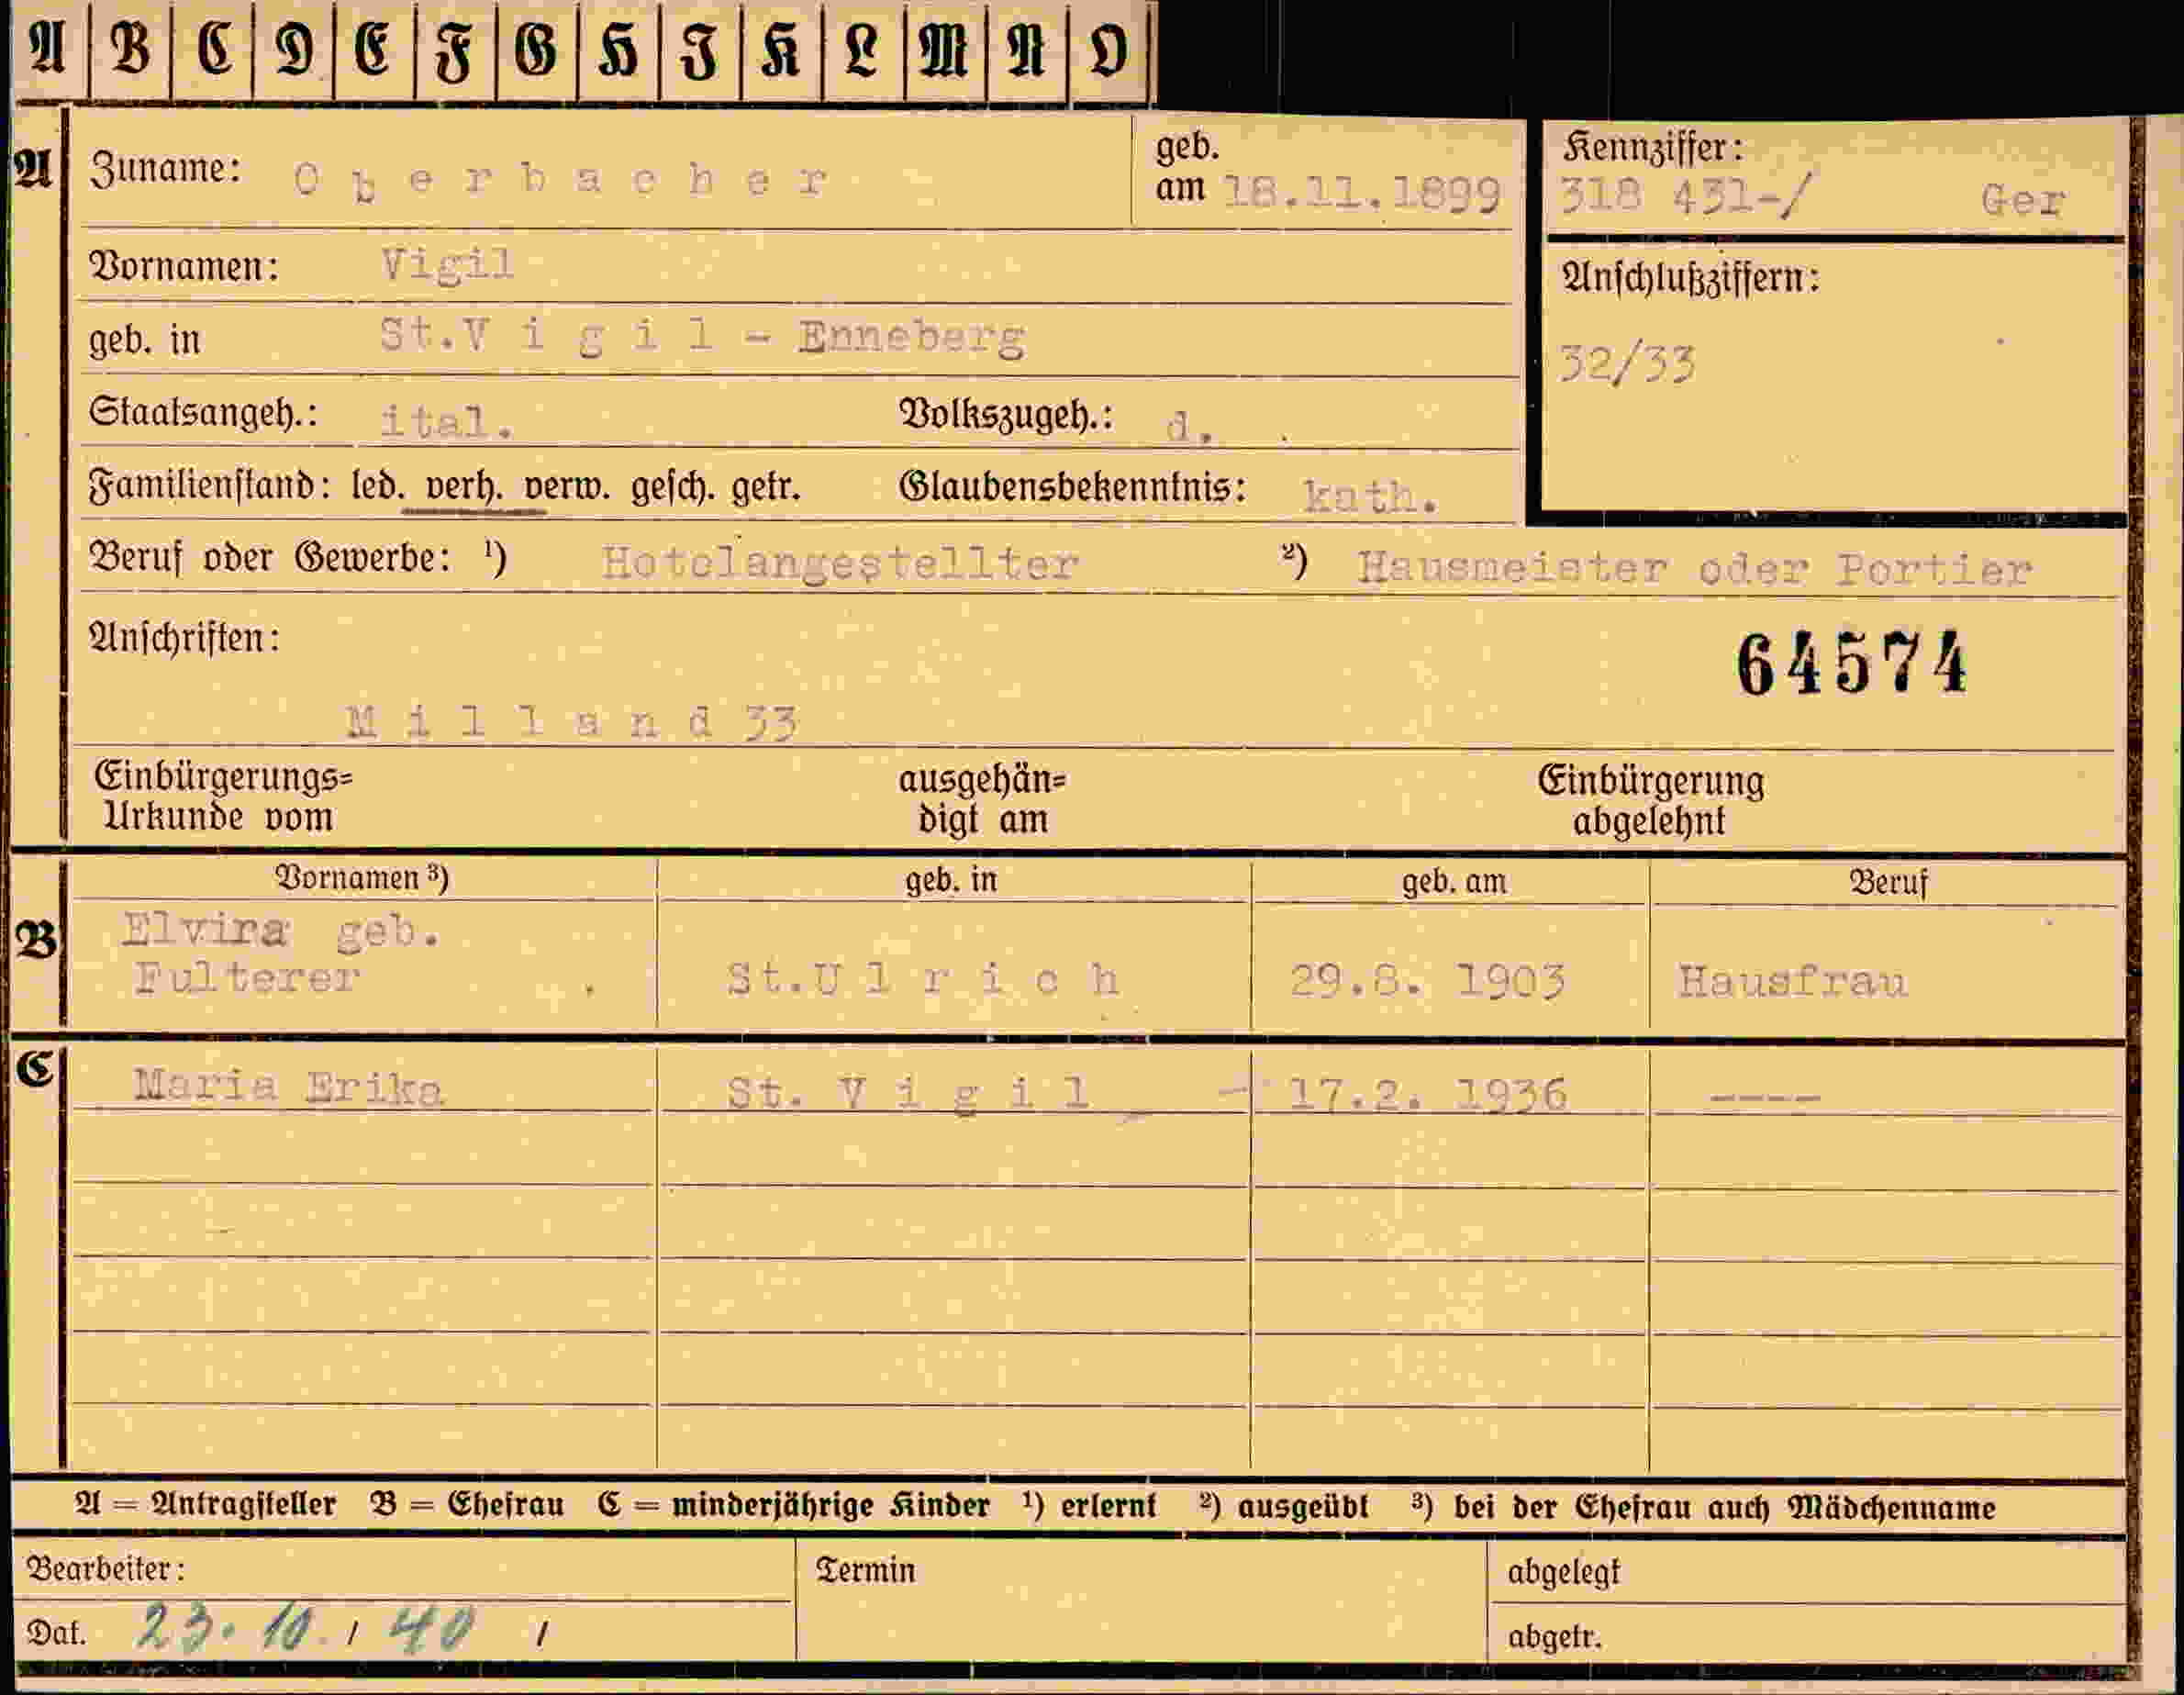 A B C D E F G H I K L M N O
A Zuname: Oberbacher geb. am 18.11.1899 Kennziffer: 318 431-/ Ger
Vornamen: Vigil
geb. in St.Vigil - Enneberg
Anschlußziffern:
32/33
Staatsangeh.: ital. Volkszugeh.: d.
Familienstand: led. verh. verw. gesch. getr. Glaubensbekenntnis: kath.
Beruf oder Gewerbe: ¹) Hotelangestellter ²) Hausmeister oder Portier
Anschriften:
64574
Milland 33
Einbürgerungs= Urkunde vom ausgehän= digt am Einbürgerung abgelehnt
Vornamen ³) geb. in geb. am Beruf
B Elvira geb.
Fulterer St.Ulrich 29.8. 1903 Hausfrau
C Maria Erika St. Vigil - 17.2. 1936 ----
A = Antragsteller B = Ehefrau C = minderjährige Kinder ¹) erlernt ²) ausgeübt ³) bei der Ehefrau auch Mädchenname
Bearbeiter: Termin abgelegt
Dat. 23. 10. / 40 / abgetr.